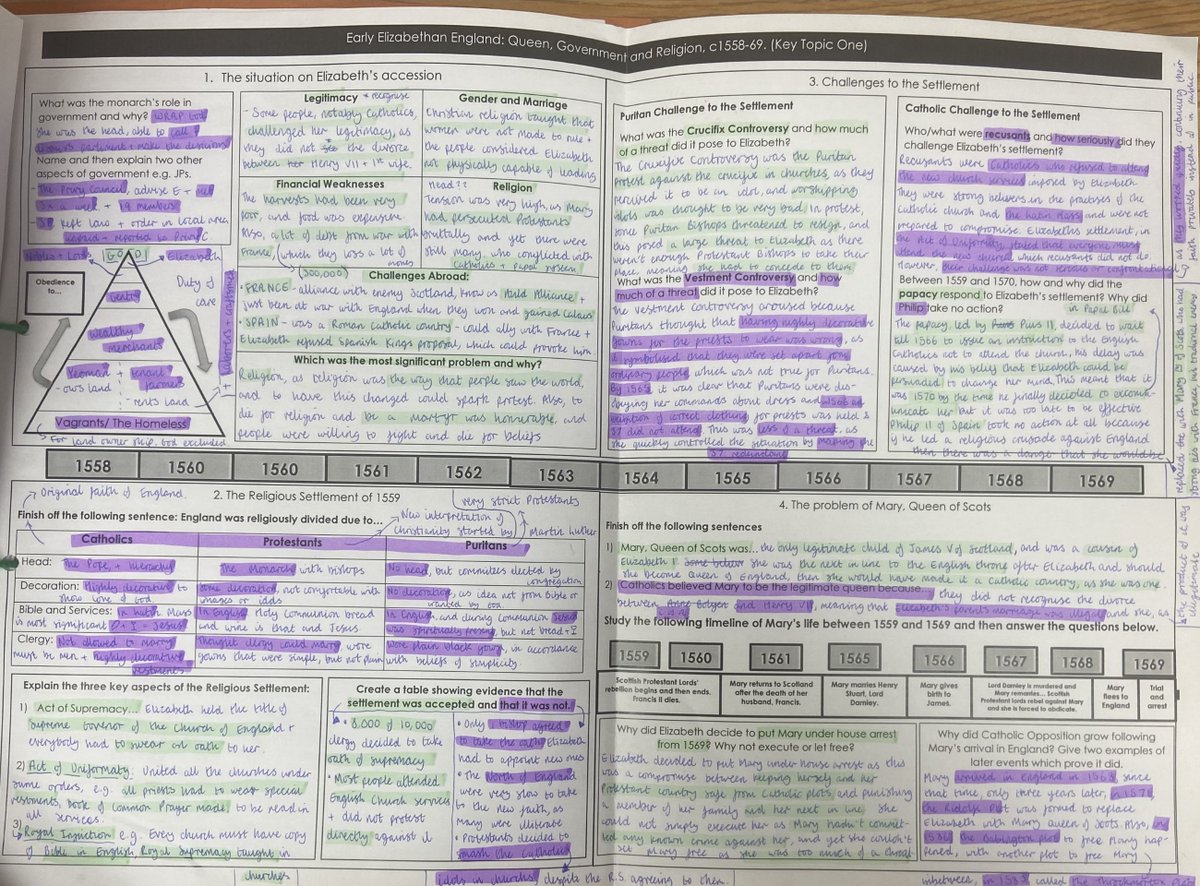 Early Elizabethan England: Queen, Government and Religion, c1558-69. (Key Topic One)
1. The situation on Elizabeth's accession
What was the monarch's role in
government and why?
She was the head, able to call
Name and then explain two other
aspects of government e.g. JPs.
The Privy Council, advise E +
19 members
JP kept law + order in local area
Nobles + Lords
GOD
Elizabeth
Obedience
to...
Gentry
Wealthy
merchants
Yeomen + tenant
farmers
- owns land
- rents land
Vagrants/ The Homeless
Duty of
care
+ labourers + craftsmen
For land ownership. God excluded
Legitimacy * recognise
- Some people, notably Catholics,
challenged her legitimacy, as
they did not see the divorce
between Henry VIII + 1st wife.
Gender and Marriage
Christian religion taught that
women were not made to rule +
the people considered Elizabeth
not physically capable of leading
Financial Weaknesses
The harvests had been very
poor, and food was expensive.
Also, a lot of debt from war with
France, (which they loss a lot of
money
(300,000)
Religion
Tension was very high, as Mary
had persecuted Protestants
brutally and yet there were
still many, who conflicted with
Catholics + Papal
Challenges Abroad:
• FRANCE - alliance with enemy Scotland, know as Auld Alliance +
just been at war with England when they won and gained Calais
• SPAIN - was a Roman Catholic country - could ally with France +
Elizabeth refused Spanish Kings proposal, which could provoke him
Which was the most significant problem and why?
Religion, as religion was the way that people saw the world,
and to have this changed could spark protest. Also, to
die for religion and be a martyr was honourable, and
people were willing to fight and die for beliefs
3. Challenges to the Settlement
Puritan Challenge to the Settlement
What was the Crucifix Controversy and how much
of a threat did it pose to Elizabeth?
The Crucifix Controversy was the Puritan
Protest against the crucifix in churches, as they
percived it to be an idol, and worshipping
idols was thought to be very bad. In protest,
some Puritan Bishops threatened to resign, and
this posed a large threat to Elizabeth as there
weren't enough Protestant Bishops to take their
place, meaning she had to concede to them
What was the Vestment Controversy and how
much of a threat did it pose to Elizabeth?
The Vestment controversy aroused because
Puritans thought that having highly decorative
gowns for the priests to wear was wrong, as
it symbolised that they were set apart from
ordinary people, which was not true for Puritans.
By 1565, it was clear that Puritans were dis-
obeying her commands about dress and
of correct clothing for priests was held &
37 did not attend. This was less of a threat, as
she quickly controlled the situation by making the
37 redundant
Catholic Challenge to the Settlement
Who/what were recusants and how seriously did they
challenge Elizabeth's settlement?
Recusants were Catholics who refused to attend
the new church services imposed by Elizabeth
They were strong believers in the practises of the
Catholic church and the Latin Mass and were not
prepared to compromise. Elizabeths settlement, in
the Act of Uniformity, stated that everyone must
attend the new church, which recusants did not do.
However, their challenge was not serious or confrontational
Between 1559 and 1570, how and why did the
papacy respond to Elizabeth's settlement? Why did
Philip take no action?
in Papal Bull
The papacy, led by Pius II, decided to wait
till 1566 to issue an instruction to the English
Catholics not to attend the church, his delay was
caused by his belief that Elizabeth could be
persuaded to change her mind. This meant that it
was 1570 by the time he finally decided to excomm-
unicate her but it was too late to be effective
Philip II of Spain took no action at all because
if he led a religious crusade against England
then there was a danger that she would be
as they worked quietly, continuing their
faith privately instead of in public
replaced with Mary Q of Scots who had
1558 1560 1560 1561 1562 1563 1564 1565 1566 1567 1568 1569
Original faith of England.
2. The Religious Settlement of 1559
very strict Protestants
Finish off the following sentence: England was religiously divided due to...
New interpretation of
Christianity started by Martin Luther
Catholics Protestants Puritans
Head: The Pope, + hierarchy The Monarch with bishops No head, but committees elected by
congregation
Decoration: Highly decorative to some decoration, not comfortable with No decoration, as idea not from Bible or
show love of God images or idols wanted by God
Bible and Services: In Latin. Mass In English. Holy communion bread In English, and during communion Jesus
is most significant and wine is that and Jesus. was spiritually present, but not bread +
Clergy: Not allowed to marry Thought clergy could marry, wore Wore plain black gown, in accordance
must be men + highly decorative gowns that were simple, but not plain with beliefs of simplicity
vestments
Explain the three key aspects of the Religious Settlement:
1) Act of Supremacy... Elizabeth held the title of
Supreme Governor of the Church of England &
everybody had to swear an oath to her.
2) Act of Uniformaty. United all the churches under
same orders, e.g. all priests had to wear special
vestments, Book of Common Prayer made to be read in
all services.
3)
Royal Injuction e.g. Every church must have copy
of Bible in English, Royal Supremacy taught in
churches
Create a table showing evidence that the
settlement was accepted and that it was not.
• 8,000 of 10,000
clergy decided to take
oath of supremacy
• Most people attended
English Church services
+ did not protest
directly against it
• Only 1 bishop agreed
to take the oath, Elizabeth
had to appoint new ones
• The North of England
were very slow to take
to the new faith, as
many were illiterate
• Protestants decided to
smash the Catholic
idols in churches, despite the R.S. agreeing to them.
4. The problem of Mary, Queen of Scots
Finish off the following sentences
1) Mary, Queen of Scots was... the only legitimate child of James V of Scotland, and was a cousin of
Elizabeth I. She was the next in line to the English throne after Elizabeth and should
she become Queen of England, then she would have made it a Catholic country, as she was one
2) Catholics believed Mary to be the legitimate queen because... they did not recognise the divorce
between and Henry VIII, meaning that Elizabeth's parents marriage was illegal and she, as
the product of it was
illegitimate
Study the following timeline of Mary's life between 1559 and 1569 and then answer the questions below.
1559 1560 1561 1565 1566 1567 1568 1569
Scottish Protestant Lords'
rebellion begins and then ends.
Francis II dies.
Mary returns to Scotland
after the death of her
husband, Francis.
Mary marries Henry
Stuart, Lord
Darnley.
Mary gives
birth to
James.
Lord Darnley is murdered and
Mary remarries... Scottish
Protestant lords rebel against Mary
and she is forced to abdicate.
Mary
flees to
England
Trial
and
arrest
Why did Elizabeth decide to put Mary under house arrest
from 1569? Why not execute or let free?
Elizabeth decided to put Mary under house arrest as this
was a compromise between keeping herself and her
Protestant country safe from Catholic plots, and punishing
a member of her family and her next in line. She
could not simply execute her as Mary hadn't commit-
ted any known crime against her, and yet she couldn't
set Mary free as she was too much of a threat
Why did Catholic Opposition grow following
Mary's arrival in England? Give two examples of
later events which prove it did.
Mary arrived in England in 1568, since
that time, only three years later, in 1571,
the Ridolfi Plot was formed to replace
Elizabeth with Mary Queen of Scots. Also, in
1586, the Babington plot to free Mary hap-
pened, with another plot to free Mary
inbetween, in 1583 called the Throckmorton Plot